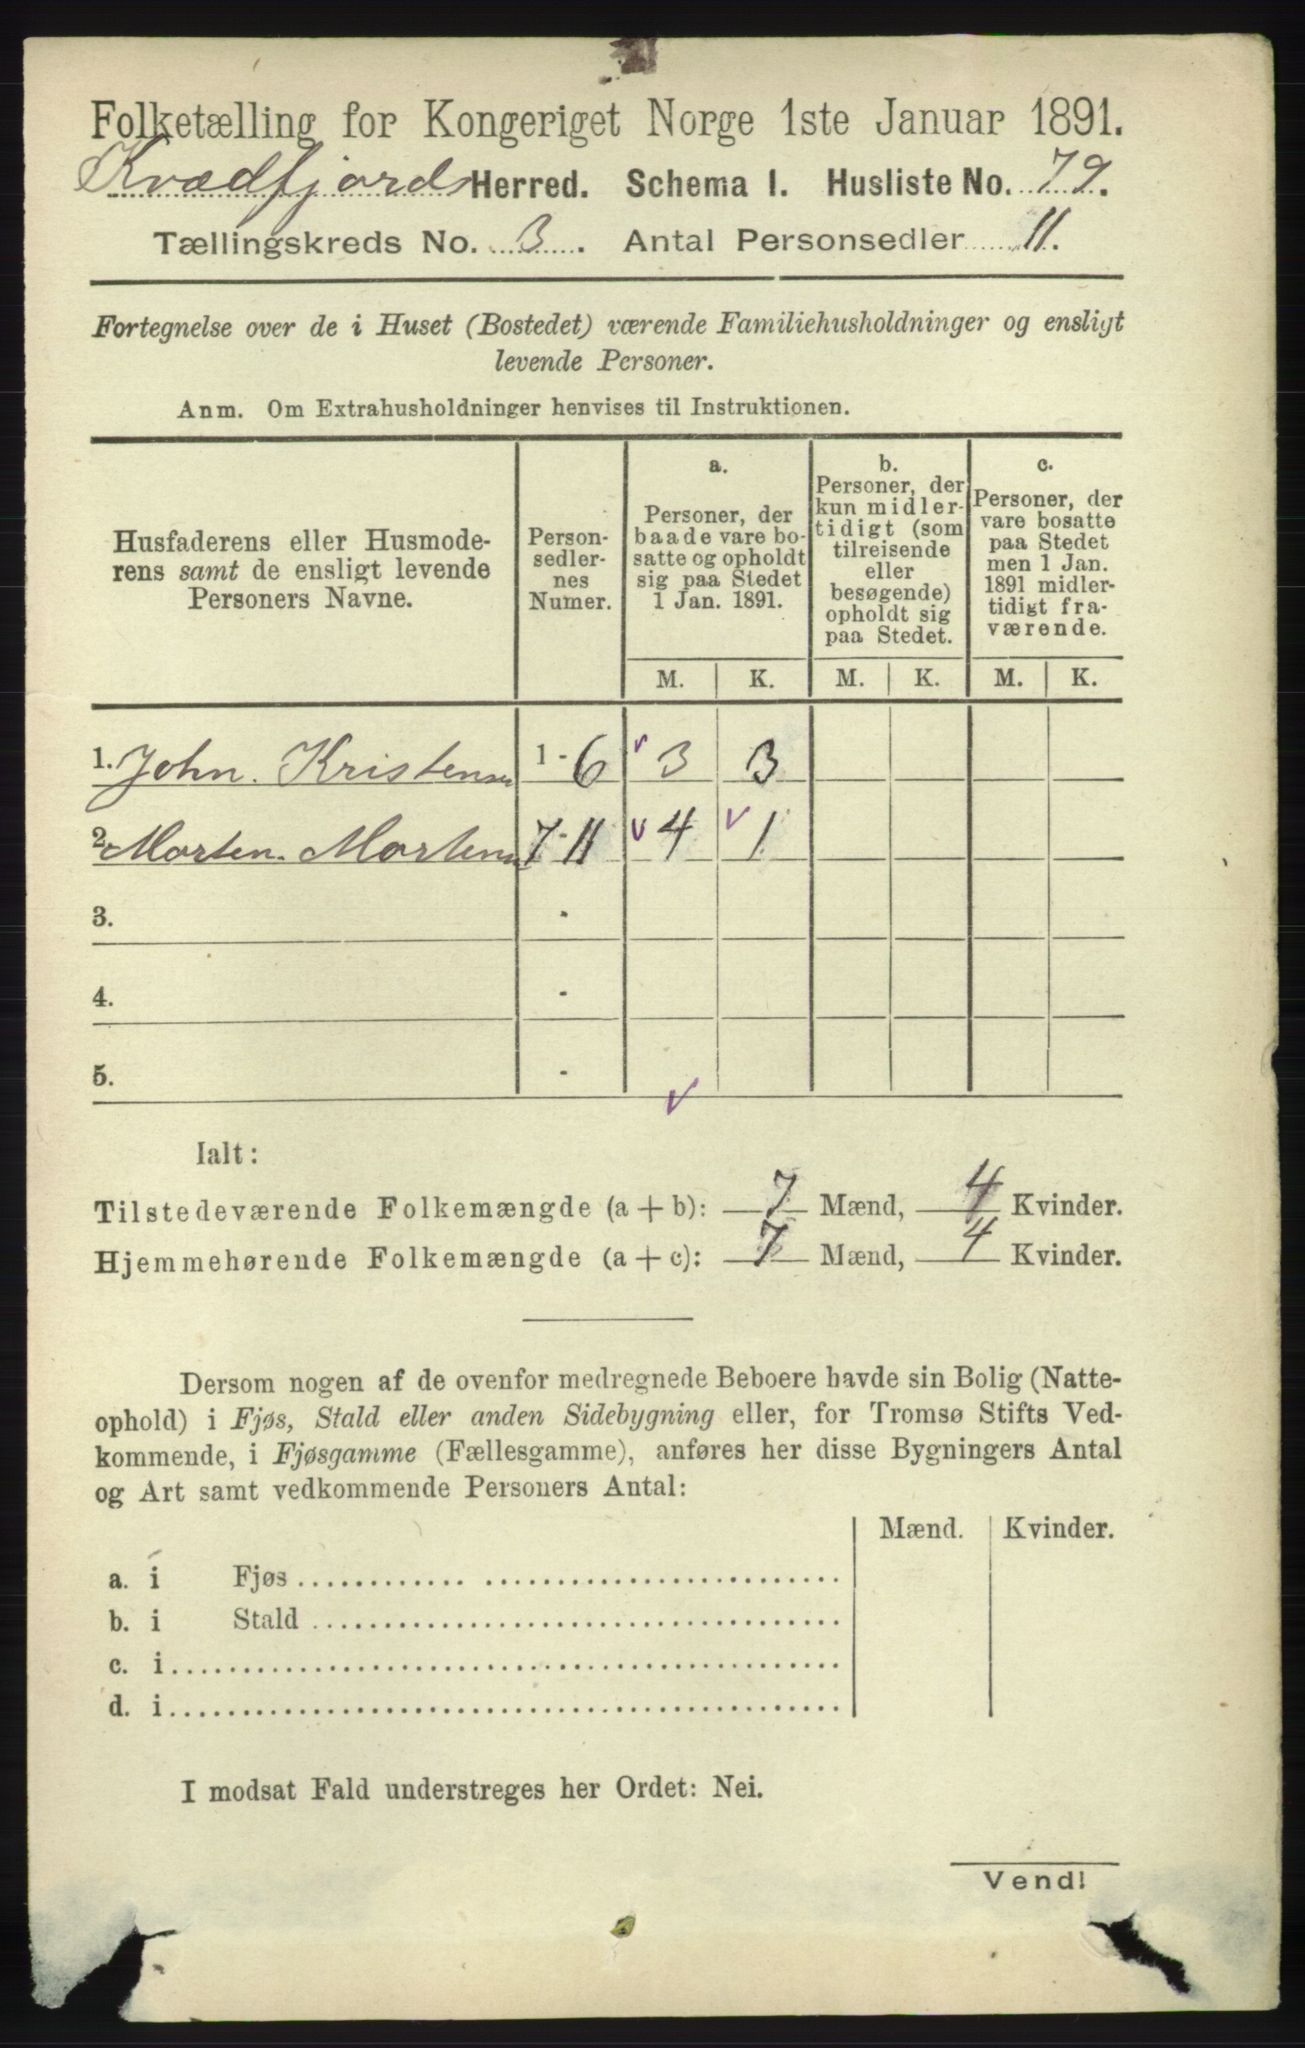 Folketælling for Kongeriget Norge 1ste Januar 1891.
Kvædfjords Herred. Schema I. Husliste No. 79.
Tællingskreds No. 3. Antal Personsedler 11.
Fortegnelse over de i Huset (Bostedet) værende Familiehusholdninger og ensligt
levende Personer.
Anm. Om Extrahusholdninger henvises til Instruktionen.
Husfaderens eller Husmode-
rens samt de ensligt levende
Personers Navne.
Person-
sedler-
nes
Numer.
a.
Personer, der
baade vare bo-
satte og opholdt
sig paa Stedet
1 Jan. 1891.
b.
Personer, der
kun midler-
tidigt (som
tilreisende
eller
besøgende)
opholdt sig
paa Stedet.
c.
Personer, der
vare bosatte
paa Stedet
men 1 Jan.
1891 midler-
tidigt fra-
værende.
M. K. M. K. M. K.
1. John. Kristensen 1-6 3 3
2. Morten. Mortensen 7-11 4 1
3. -
4. -
5. -
Ialt:
Tilstedeværende Folkemængde (a + b): 7 Mænd, 4 Kvinder.
Hjemmehørende Folkemængde (a + c): 7 Mænd, 4 Kvinder.
Dersom nogen af de ovenfor medregnede Beboere havde sin Bolig (Natte-
ophold) i Fjøs, Stald eller anden Sidebygning eller, for Tromsø Stifts Ved-
kommende, i Fjøsgamme (Fællesgamme), anføres her disse Bygningers Antal
og Art samt vedkommende Personers Antal:
Mænd. Kvinder.
a. i Fjøs
b. i Stald
c. i
d. i
I modsat Fald understreges her Ordet: Nei.
Vend!